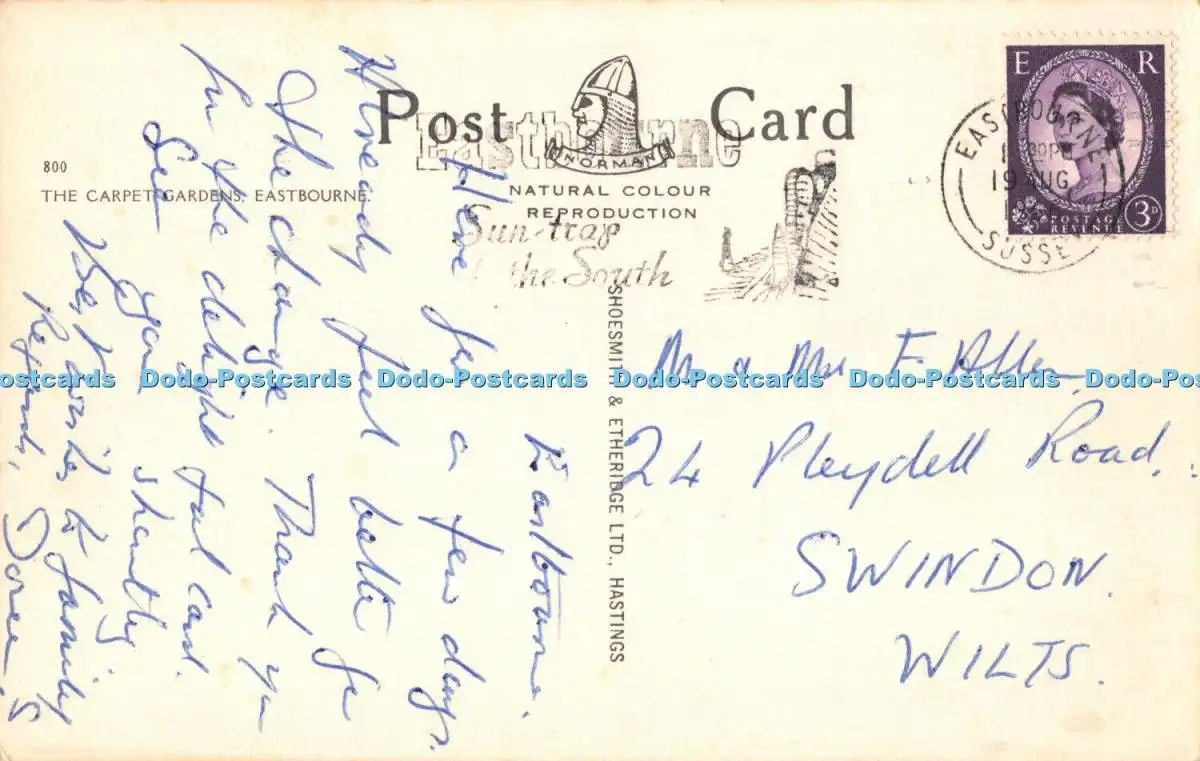 Post Card
NORMAN
NATURAL COLOUR
REPRODUCTION
800
THE CARPET GARDENS, EASTBOURNE.
Eastbourne
Sun-trap
the South
E R
POSTAGE
REVENUE
3D
EASTBOURNE
19 AUG
SUSSE
SHOESMITH & ETHERIDGE LTD., HASTINGS
Eastbourne.
Here for a few days.
Already feel better for
the change. Thank you
for the delightful card.
See you shortly
Best wishes to family
Regards,
Mr & Mrs F.
24 Pleydell Road.
SWINDON.
WILTS.
Dodo-Postcards Dodo-Postcards Dodo-Postcards Dodo-Postcards Dodo-Postcards